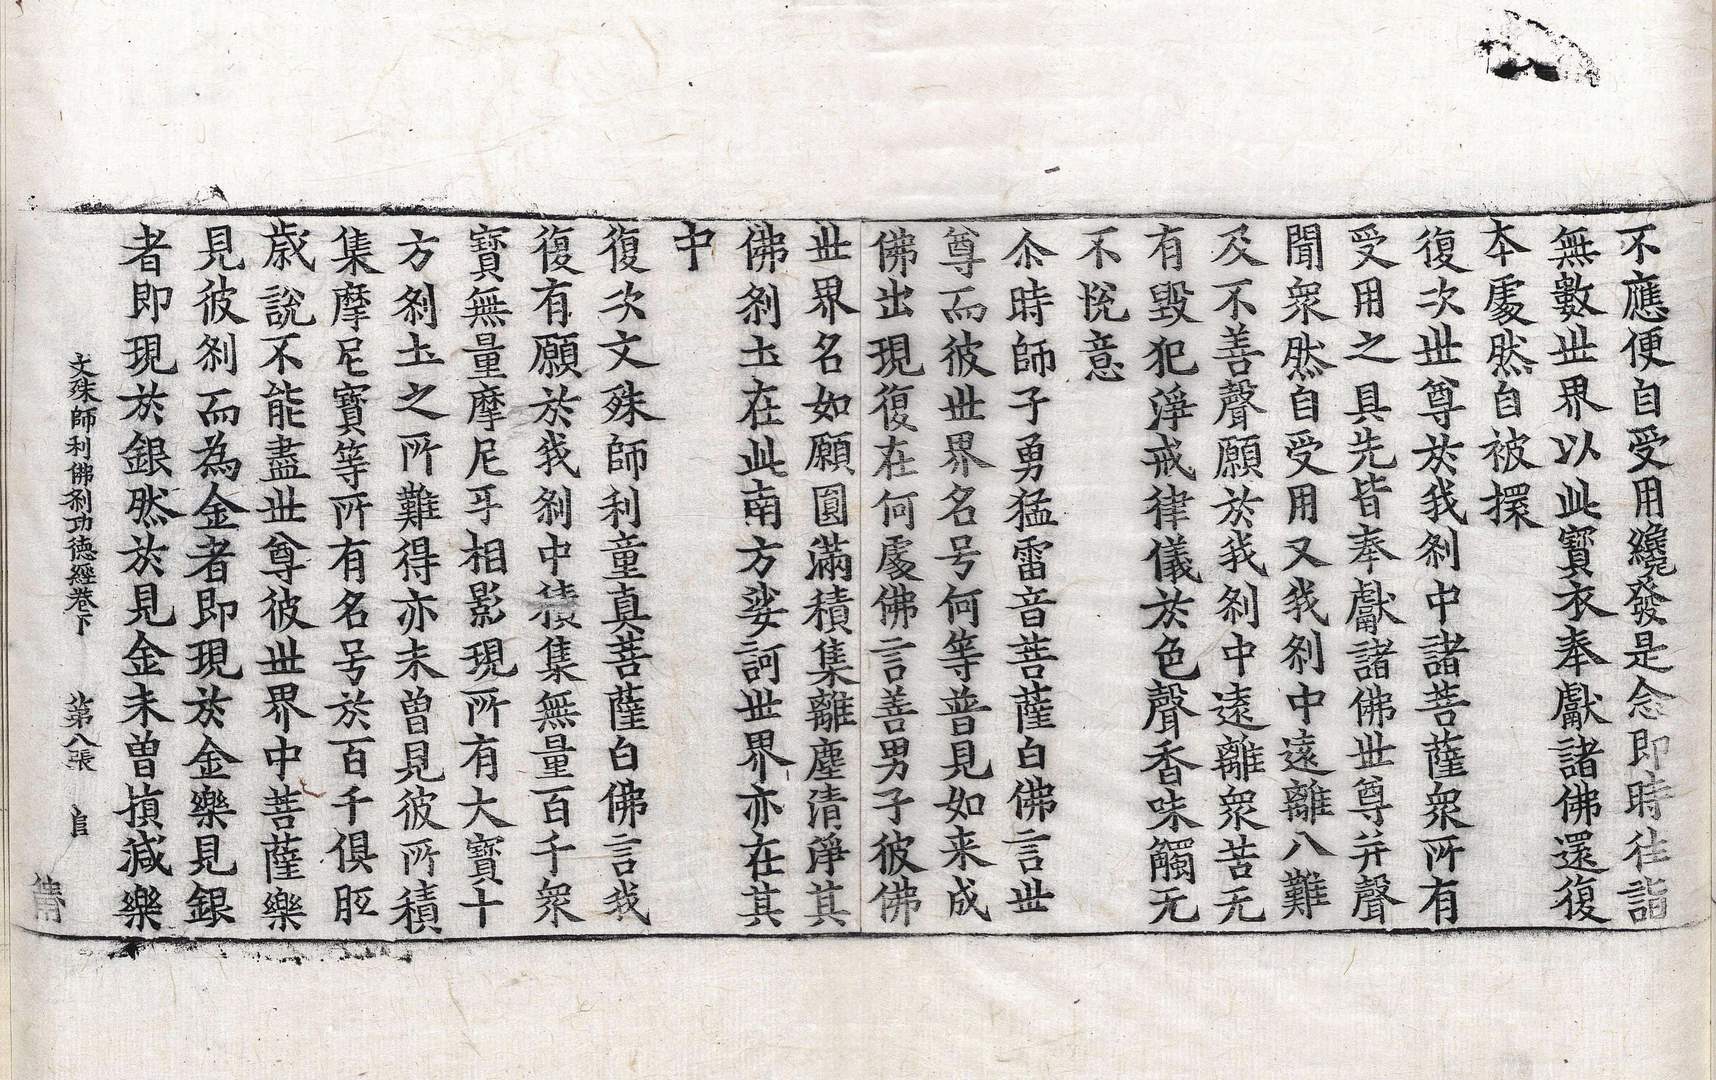 不應便自受用纔發是念即時往詣
無數世界以此寶衣奉獻諸佛還復
本處然自被擐
復次世尊於我刹中諸菩薩衆所有
受用之具先皆奉獻諸佛世尊并聲
聞衆然自受用又我刹中遠離八難
及不善聲願於我刹中遠離衆苦无
有毀犯淨戒律儀於色聲香味觸无
不悅意
尒時師子勇猛雷音菩薩白佛言世
尊而彼世界名号何等普見如来成
佛出現復在何處佛言善男子彼佛
世界名如願圓滿積集離塵清淨其
佛刹圡在此南方娑訶世界亦在其
中
復次文殊師利童真菩薩白佛言我
復有願於我刹中積集無量百千衆
寶無量摩尼㸦相影現所有大寶十
方刹圡之所難得亦未曽見彼所積
集摩尼寶等所有名号於百千俱胝
歲說不能盡世尊彼世界中菩薩樂
見彼刹而為金者即現於金樂見銀
者即現於銀然於見金未曽損減樂
文殊師利佛刹功德經卷下 第八張 官